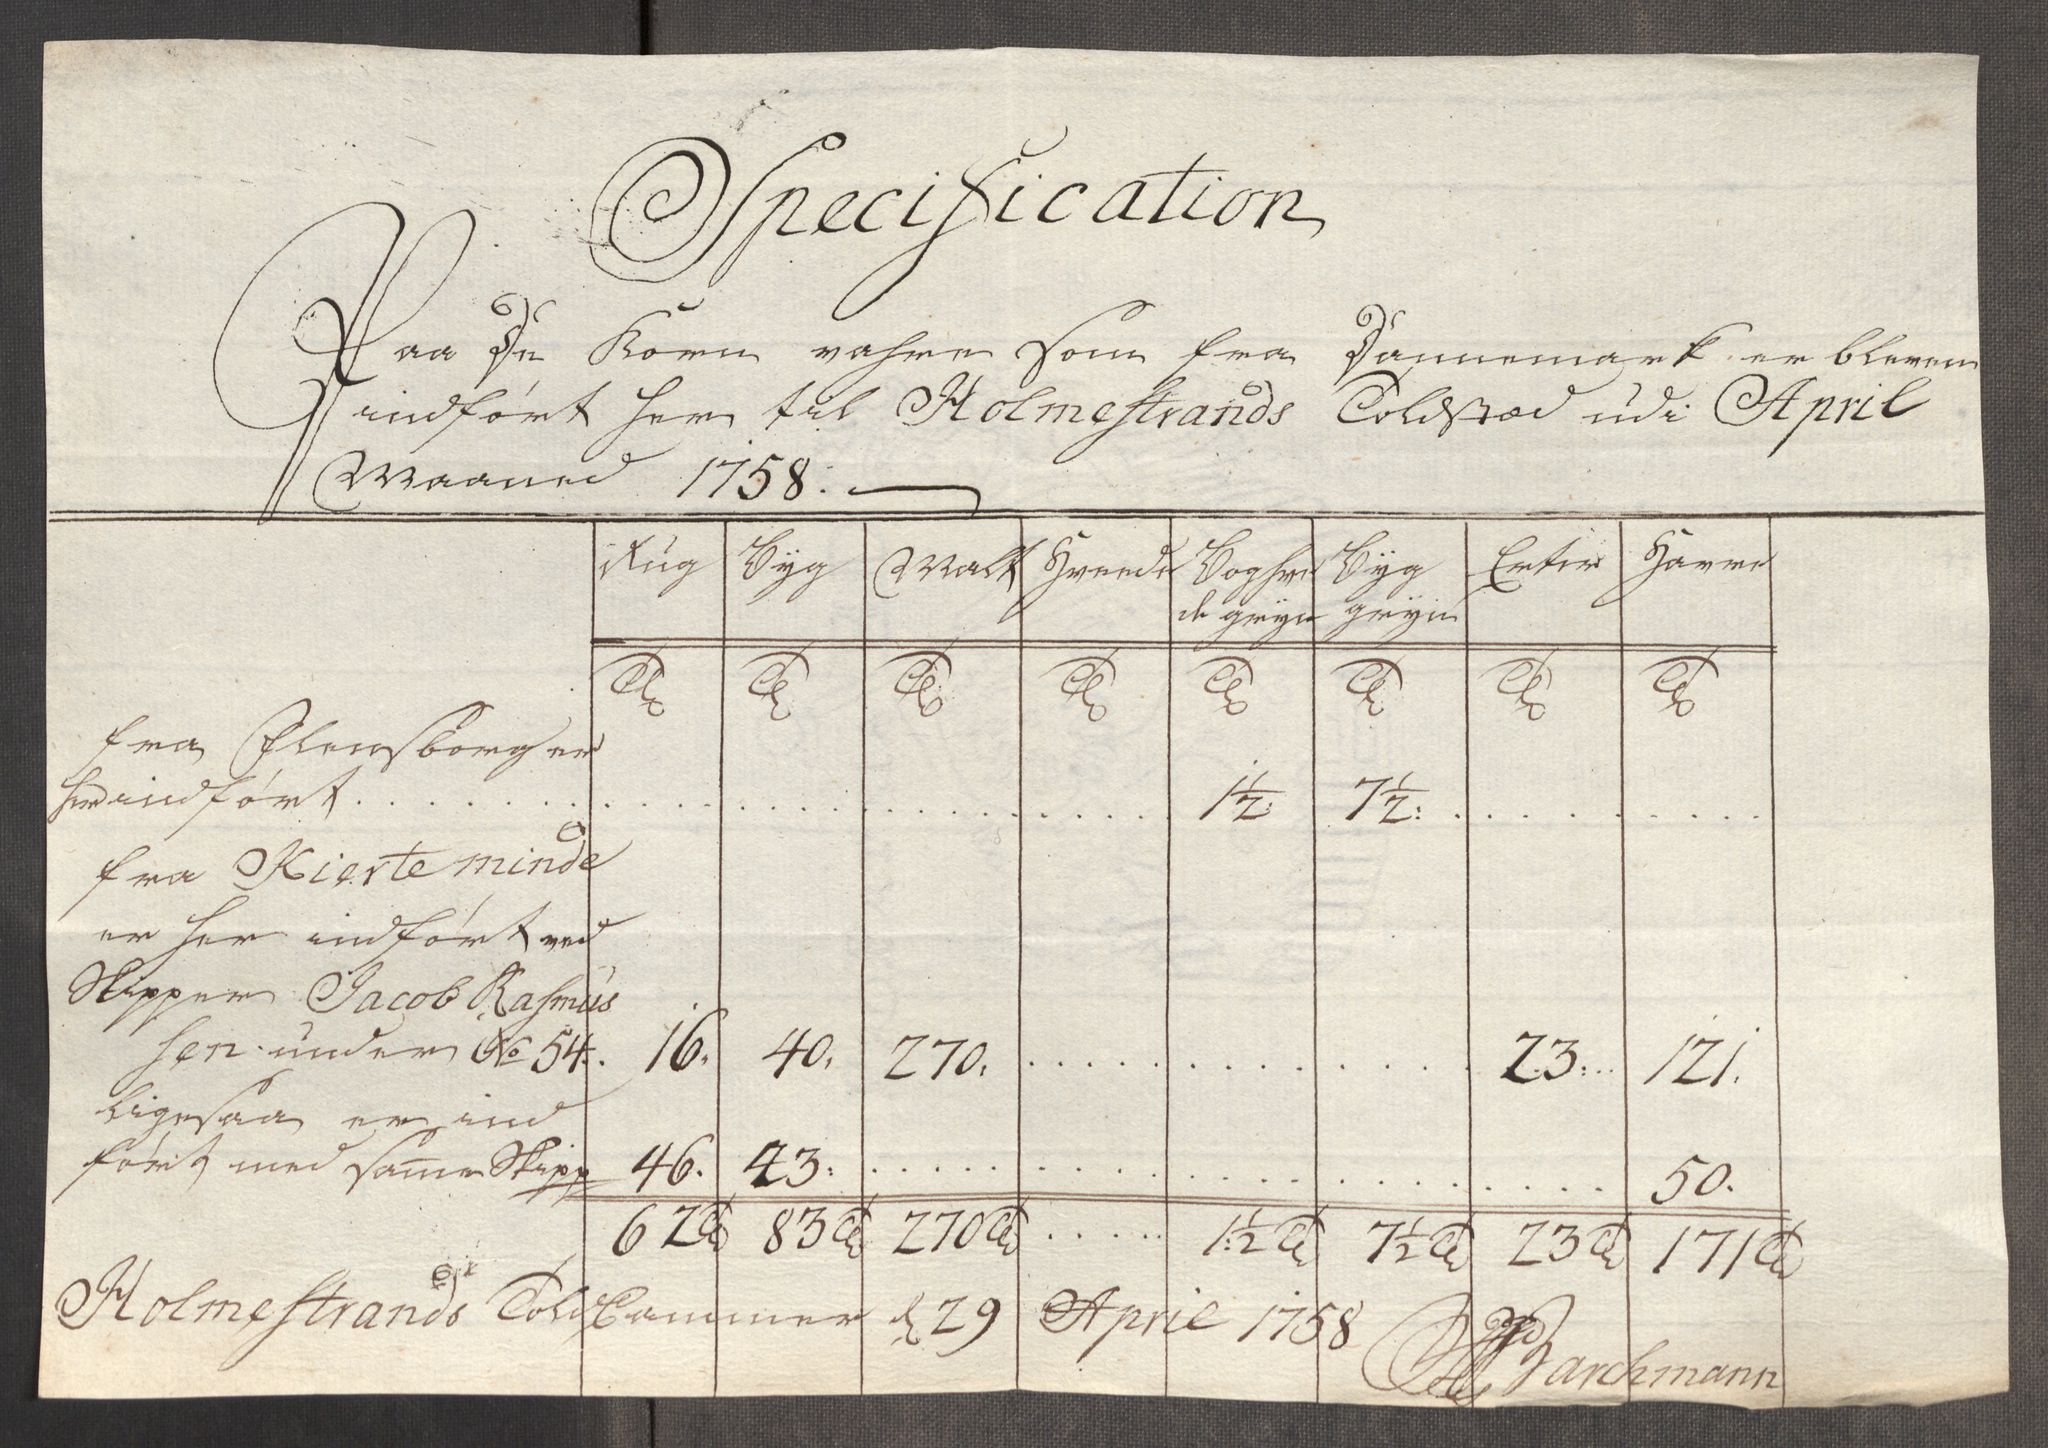 Specification
Paa De Korn vahre som fra Dannemark er bleven
indført her til Holmestrands Toldstæd udi April
Maaned 1758.
Rug Byg Malt Hvede Boghve Byg Erter Havre
de gryn gryn
Tdr Tdr Tdr Tdr Tdr Tdr Tdr Tdr
fra Flensborg er
her indført 1½: 7½:
fra Kierteminde
er her indført ved
Skipper Jacob Rasmus
sen under No 54. 16. 40. 270. 23: 121.
ligesaa er ind
ført med samme Skipp 46. 43: 50.
62 Tdr 83 Tdr 270 Tdr 1½ Tdr 7½ Tdr 23 Tdr 171 Tdr
Holmestrands Told Cammer d 29 April 1758
Barchmann